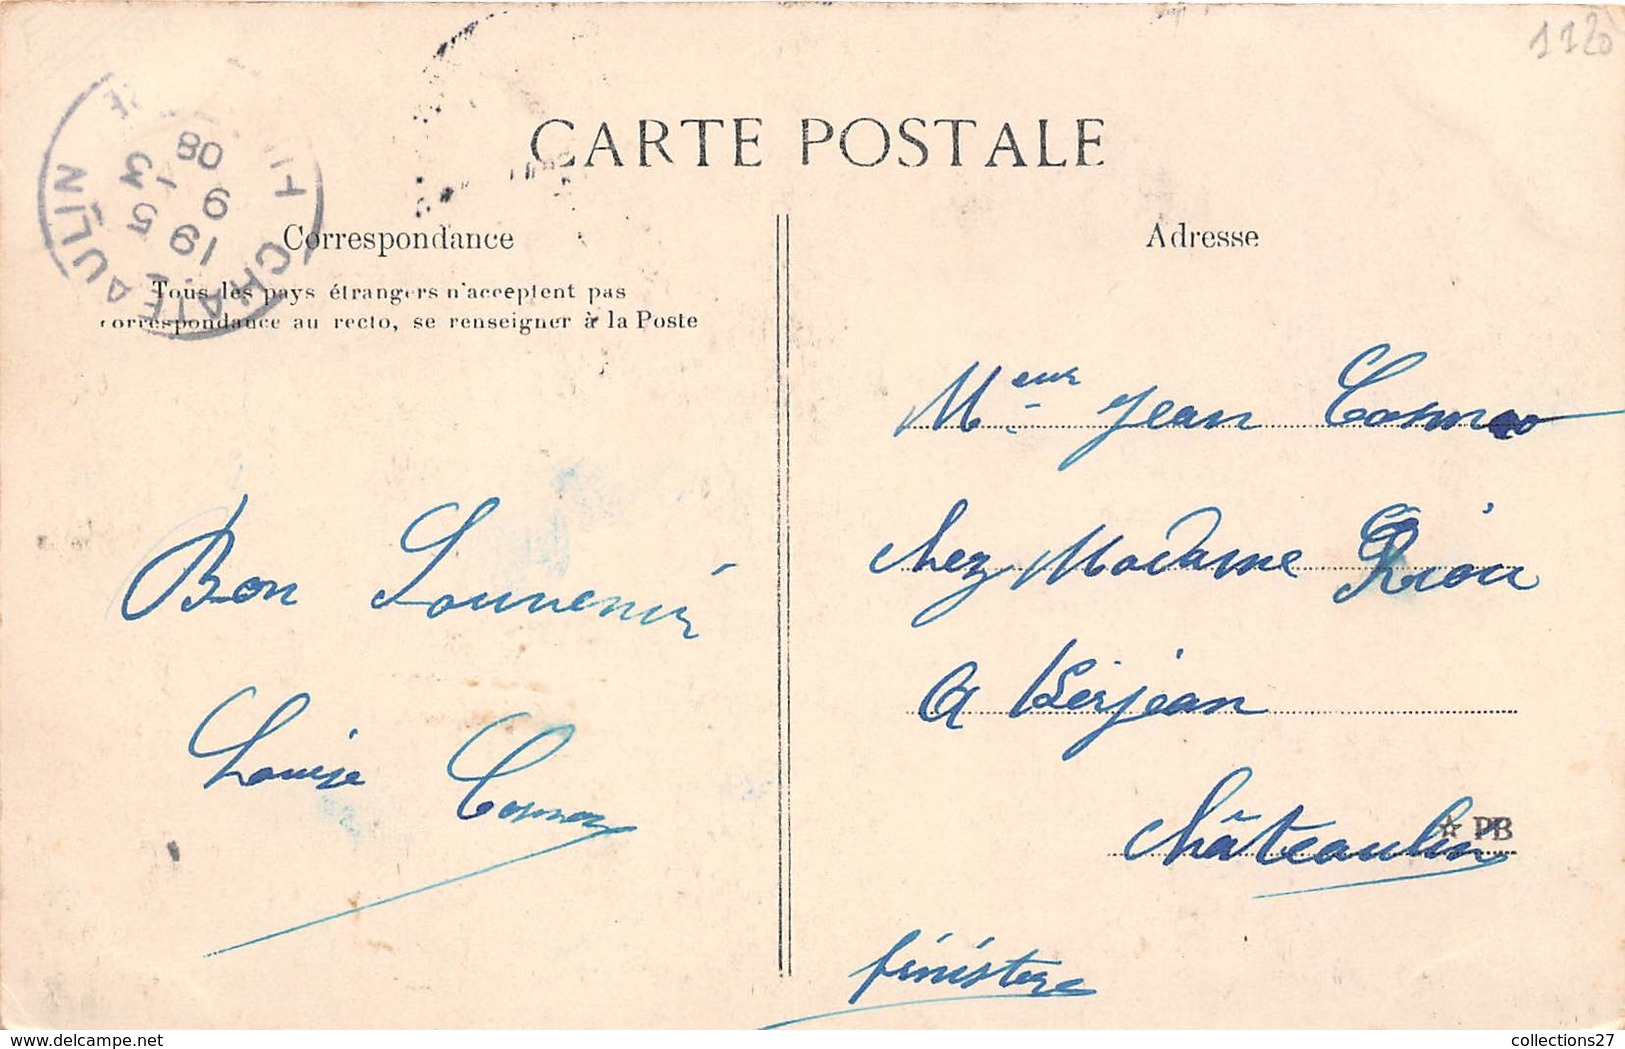 1120
CHATEAULIN
19 5
9 13
08
CARTE POSTALE
Correspondance
Tous les pays étrangers n'acceptent pas
correspondance au recto, se renseigner à la Poste
Bon Souvenir
Louise
Adresse
Meur Jean
chez Madame Riou
a Kerjean
châteaulin
☆ PB
finistere
www.delcampe.net
collections27